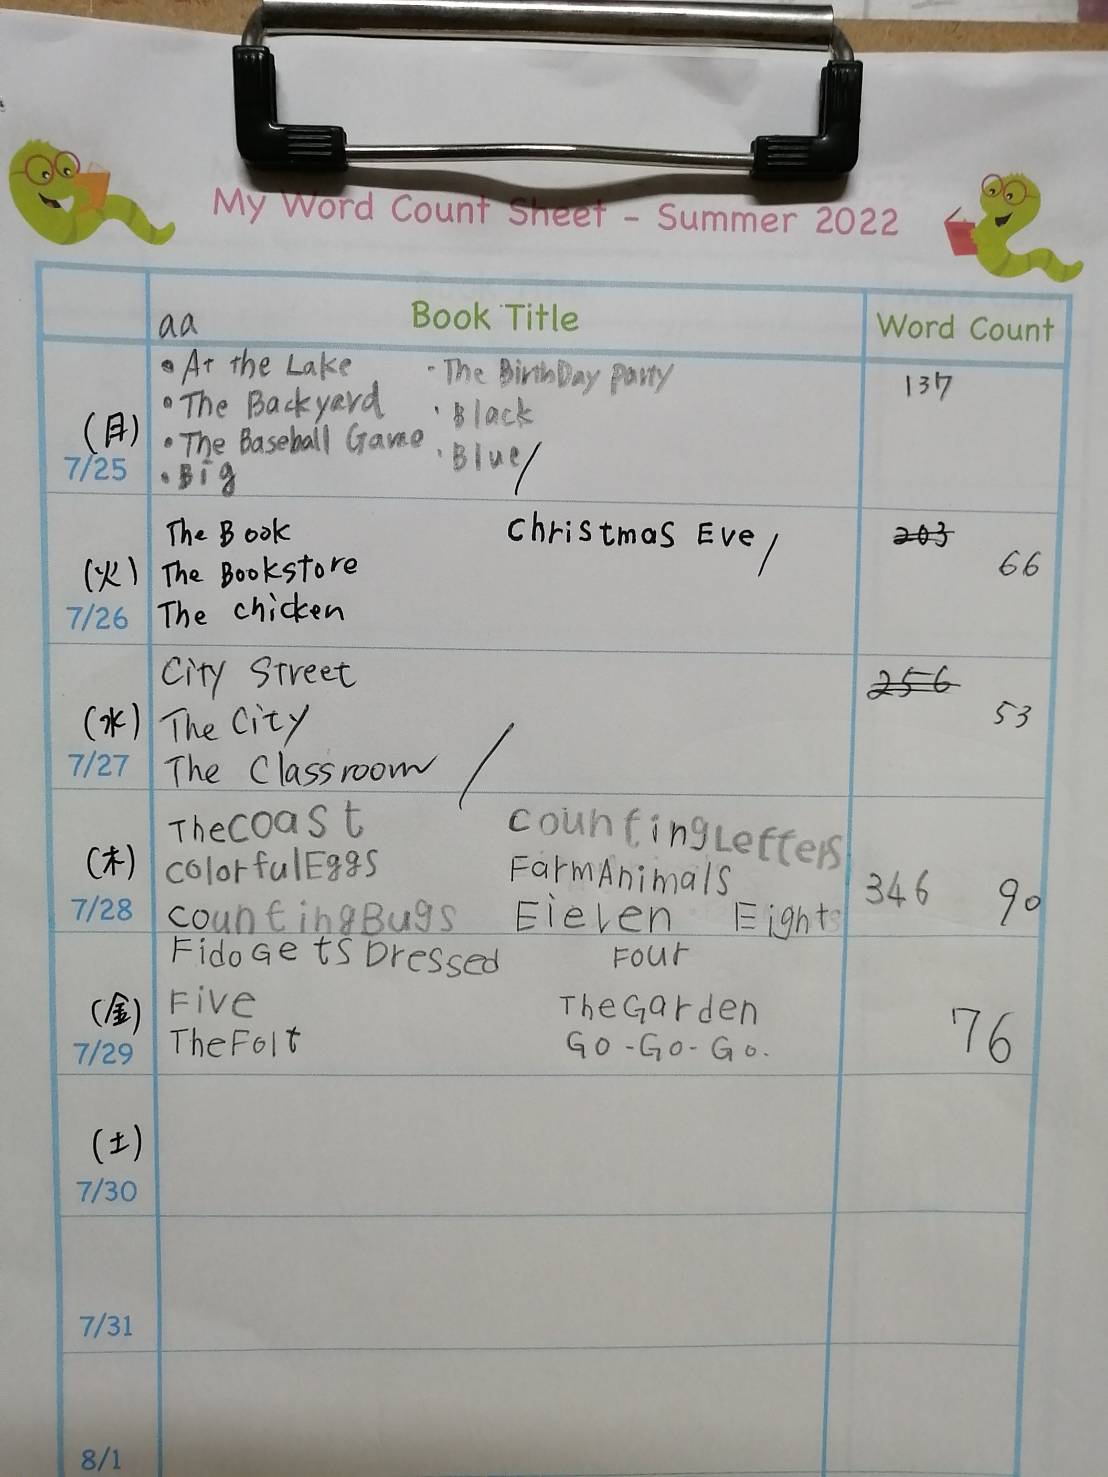 My Word Count Sheet - Summer 2022
aa Book Title Word Count
• At the Lake · The BirthDay party 137
• The Backyard · Black
• The Baseball Game · Blue/
• Big
(月)
7/25
The Book Christmas Eve / 203
The Bookstore 66
The chicken
(火)
7/26
City Street 256
The City 53
The Classroom /
(水)
7/27
The coast counting Letters
colorful Eggs Farm Animals 346 90
counting Bugs Eleven Eights
(木)
7/28
Fido Gets Dressed Four
Five The Garden 76
The Folt Go-Go-Go.
(金)
7/29
(土)
7/30
7/31
8/1